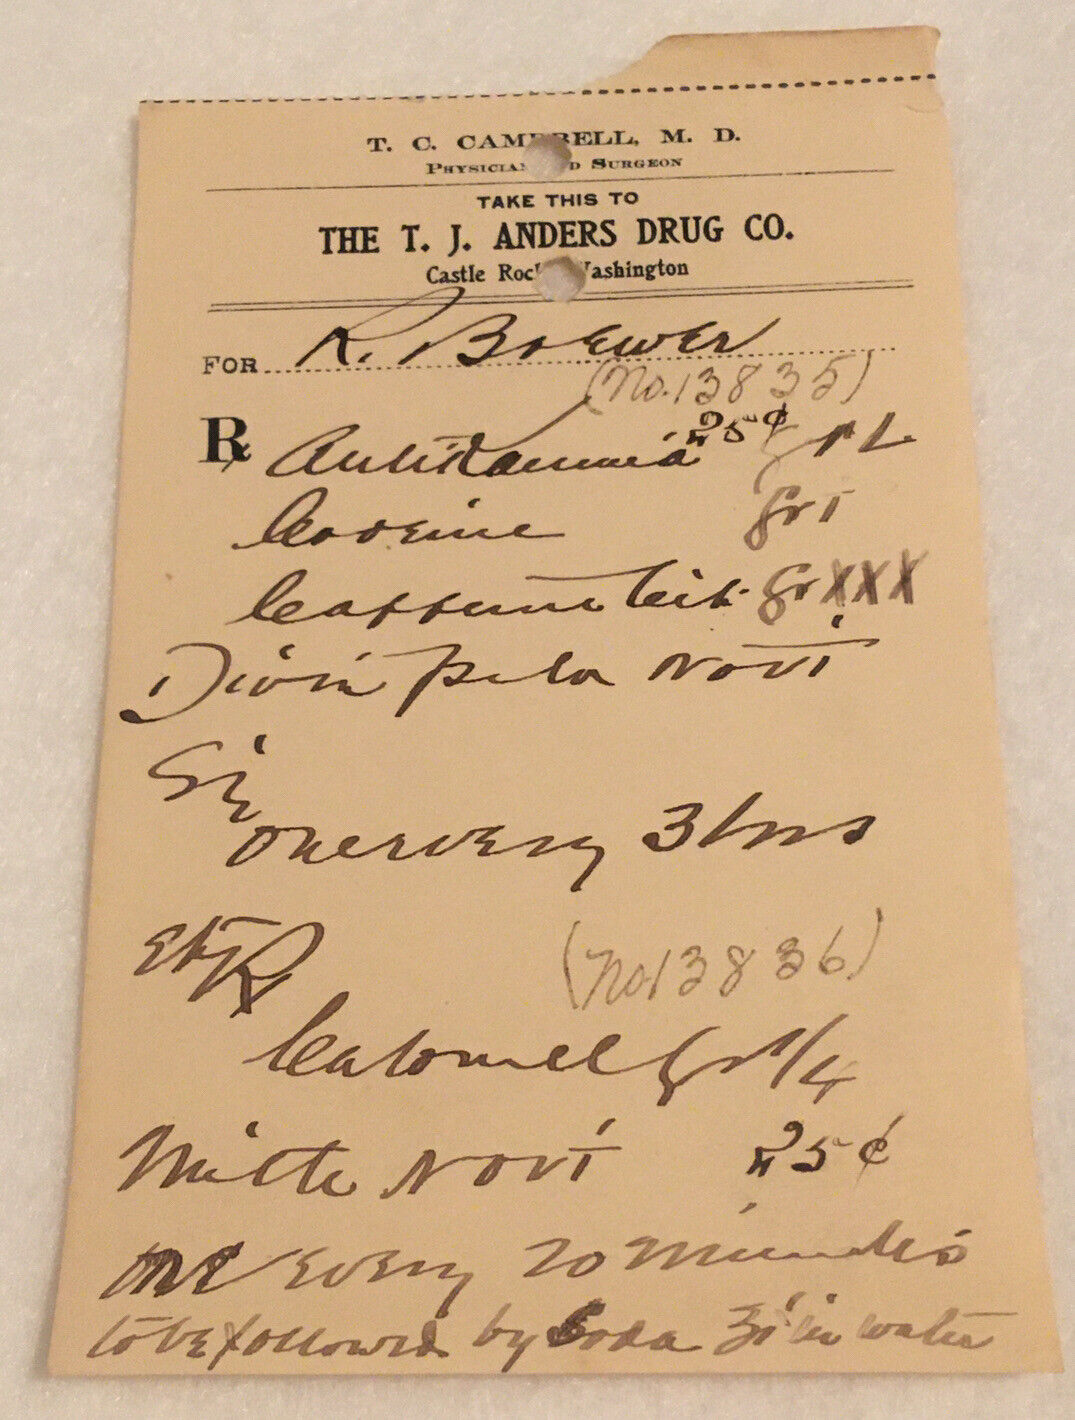 T. C. CAMPBELL, M. D.
PHYSICIAN AND SURGEON
TAKE THIS TO
THE T. J. ANDERS DRUG CO.
Castle Rock, Washington
FOR R. Brewer
(No. 13835)
Rx Antikamnia 25¢ gr
Codeine gr i
Caffeine Cit. gr XXX
Divin pula No vi
Sig
One every 3 hrs
Et Rx
(No. 13836)
Calomel gr 1/4
Mitte No vi 25¢
one every 20 minutes
to be followed by Soda ʒi in water